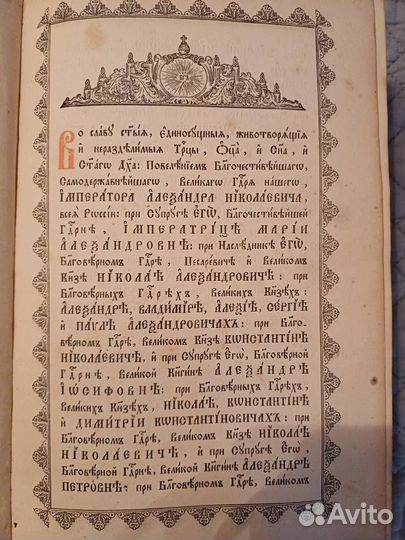 Во славу ст҃ыѧ, єдиносꙋщныѧ, животворѧщіѧ
и҆ нераздѣлимыѧ трⷪ҇цы, ѻ҆ц҃а̀, и҆ сн҃а, и҆
ст҃а́гѡ дх҃а: повелѣнїемъ благочестивѣйшагѡ,
самодержавнѣйшагѡ, великагѡ гдⷭ҇рѧ нашегѡ,
І҆МПЕРАТОРА А҆ЛЕѮАНДРА НІКОЛАЕВИЧА,
всеѧ̀ рѡссіи: при сꙋпрꙋгѣ є҆гѡ̀, благочестивѣйшей
гдⷭ҇рнѣ, І҆МПЕРАТРИЦѢ МАРІИ
А҆ЛЕѮАНДРОВНѢ: при наслѣдникѣ є҆гѡ̀,
благовѣрномъ гдⷭ҇рѣ, цесаревичѣ и҆ великомъ
кнѧ҃зѣ НІКОЛАѢ А҆ЛЕѮАНДРОВИЧѢ: при
благовѣрныхъ гдⷭ҇рѣхъ, великихъ кнѧ҃зѣхъ:
А҆ЛЕѮАНДРѢ, ВЛАДИМІРѢ, А҆ЛЕѮІѢ, СЕРГІѢ
и҆ ПАѴЛѢ А҆ЛЕѮАНДРОВИЧАХЪ: при благо-
вѣрномъ гдⷭ҇рѣ, великомъ кнѧ҃зѣ КѠНСТАНТІНѢ
НІКОЛАЕВИЧѢ, и҆ при сꙋпрꙋгѣ є҆гѡ̀, благовѣрной
гдⷭ҇рнѣ, великой кнѧги́нѣ А҆ЛЕѮАНДРѢ
І҆ѠСИФОВНѢ: при благовѣрныхъ гдⷭ҇рѣхъ,
великихъ кнѧ҃зѣхъ, НІКОЛАѢ, КѠНСТАНТІНѢ
и҆ ДИМИТРІИ КѠНСТАНТІНОВИЧАХЪ: при
благовѣрномъ гдⷭ҇рѣ, великомъ кнѧ҃зѣ НІКОЛАѢ
НІКОЛАЕВИЧѢ, и҆ при сꙋпрꙋгѣ є҆гѡ̀,
благовѣрной гдⷭ҇рнѣ, великой кнѧги́нѣ А҆ЛЕѮАНДРѢ
ПЕТРОВНѢ: при благовѣрномъ гдⷭ҇рѣ, великомъ
Avito